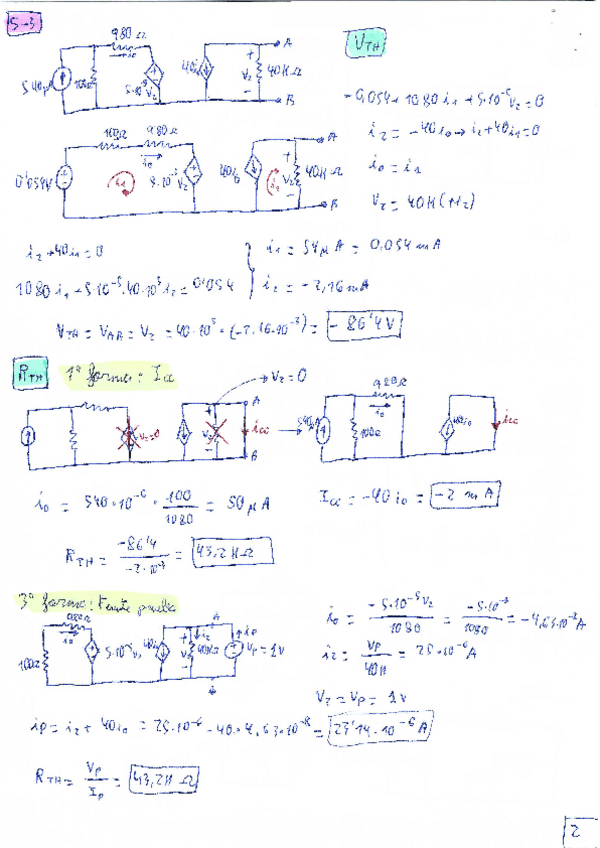 5-3
980 Ω
V_TH
540μ
100Ω
i₀
5·10⁻⁵ V₂
40i₀
+ V₂ -
40KΩ
A
B
-0,054 + 1080 i₁ + 5·10⁻⁵ V₂ = 0
i₂ = -40 i₀ → i₂ + 40 i₁ = 0
i₀ = i₁
V₂ = 40K (i₂)
100Ω 980Ω
0'054V
i₀
i₁
5·10⁻⁵ V₂
40i₀
i₂
+ V₂ -
40KΩ
A
B
i₂ + 40 i₁ = 0
1080 i₁ + 5·10⁻⁵·40·10³ i₂ = 0'054
i₁ = 54μA = 0,054 mA
i₂ = -2,16 mA
V_TH = V_AB = V₂ = 40·10³ · (-2,16·10⁻³) = -86'4 V
R_TH 1ª forma: Icc
→ V₂ = 0
V₂=0
V₂
A
B
icc
540μA
100Ω
980Ω
i₀
40i₀
icc
i₀ = 540·10⁻⁶ · 100/1080 = 50 μA
Icc = -40 i₀ = -2 mA
R_TH = -86'4 / -2·10⁻³ = 43,2 KΩ
3ª forma: Fuente prueba
980Ω
i₀
100Ω
5·10⁻⁵ V₂
40i₀
i₂
+ V₂ -
40KΩ
A
ip
Vp = 1V
i₀ = -5·10⁻⁵ V₂ / 1080 = -5·10⁻⁵ / 1080 = -4,63·10⁻⁸ A
i₂ = Vp / 40K = 25·10⁻⁶ A
V₂ = Vp = 1V
ip = i₂ + 40 i₀ = 25·10⁻⁶ - 40·4,63·10⁻⁸ = 23'14·10⁻⁶ A
R_TH = Vp / Ip = 43,2K Ω
2